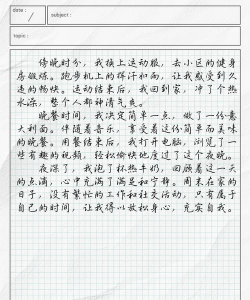 date:
subject:
topic:
傍晚时分，我换上运动服，去小区的健身
房锻炼。跑步机上的挥汗如雨，让我感受到久
违的畅快。运动结束后，我回到家，冲了个热
水澡，整个人都神清气爽。
晚餐时间，我决定简单一点，做了一份意
大利面。伴随着音乐，享受着这份简单而美味
的晚餐。用餐结束后，我打开电脑，浏览了一
些有趣的视频，轻松愉快地度过了这个夜晚。
夜深了，我泡了杯热牛奶，回顾着这一天
的点滴，心中充满了满足和宁静。周末在家的
日子，没有繁忙的工作和社交活动，只有属于
自己的时间，让我得以放松身心，充实自我。